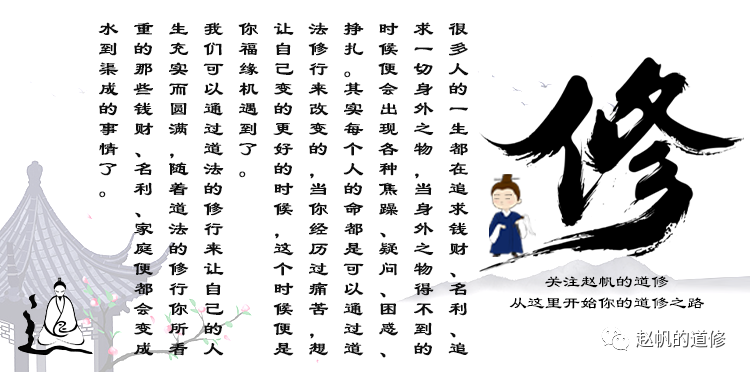 修
关注赵帆的道修
从这里开始你的道修之路
很多人的一生都在追求钱财、名利、追
求一切身外之物，当身外之物得不到的
时候便会出现各种焦躁、疑问、困惑、
挣扎。其实每个人的命都是可以通过道
法修行来改变的，当你经历过痛苦，想
让自己变的更好的时候，这个时候便是
你福缘机遇到了。
我们可以通过道法的修行来让自己的人
生充实而圆满，随着道法的修行你所看
重的那些钱财、名利、家庭便都会变成
水到渠成的事情了。
赵帆的道修